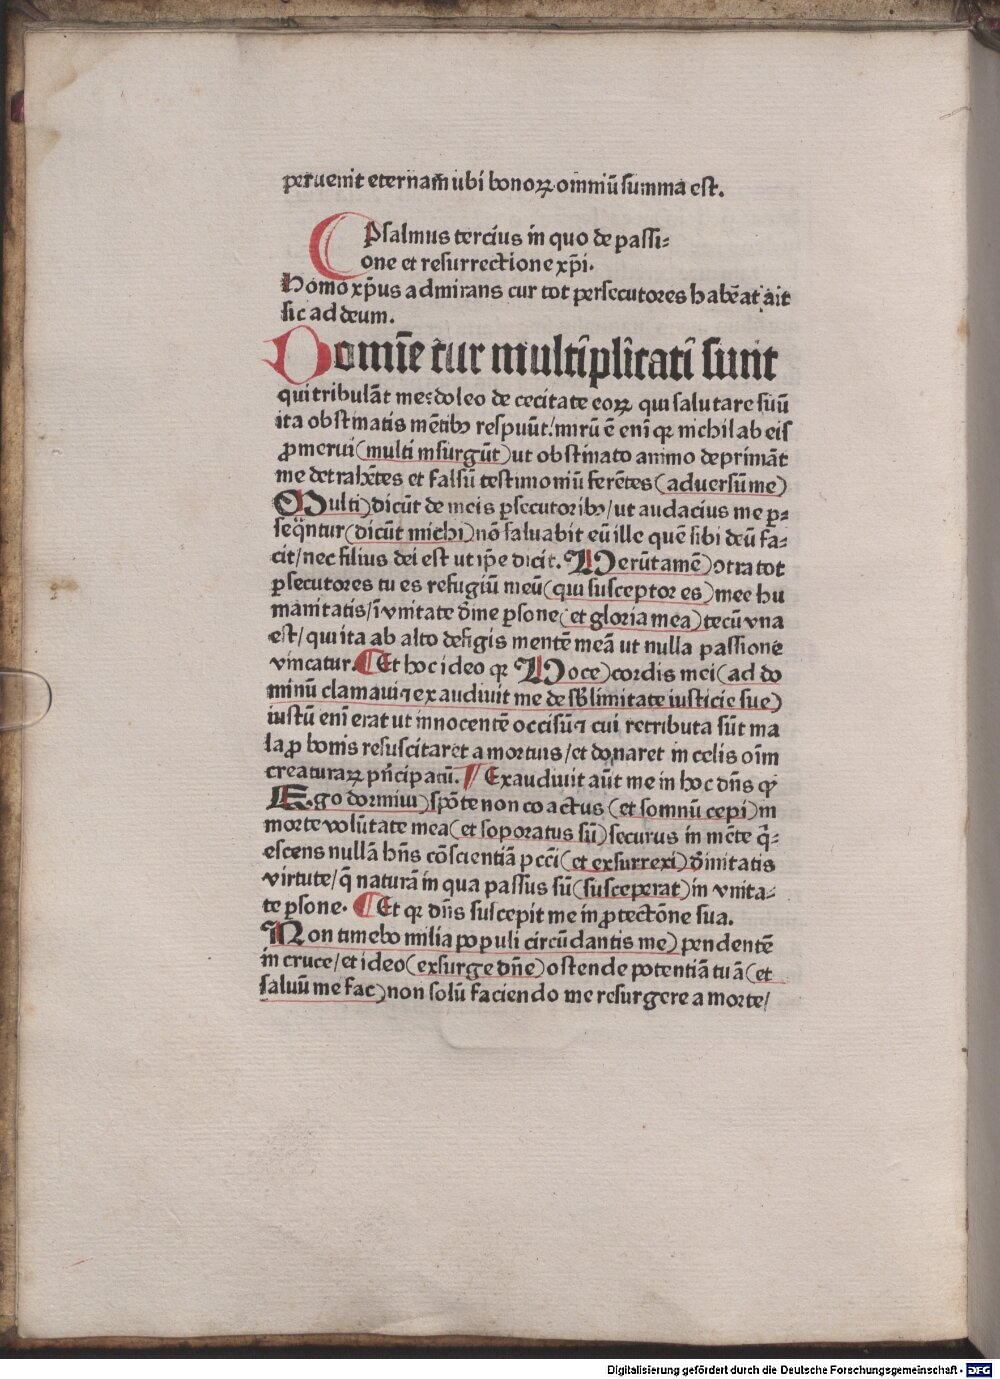 peruenit eternam̄ ubi bonoꝝ omniū summa est.
Psalmus tercius in quo de passi⸗
one et resurrectione xp̄i.
Homo xp̄us admirans cur tot persecutores habēat ait
sic ad deum.
Domīe cur multiplicati sunt
qui tribulāt me: doleo de cecitate eoꝝ qui salutare suū
ita obstinatis mētibꝰ respuūt: mirū ē eni qꝛ nichil ab eis
ꝓmerui (multi insurgūt) ut obstinato animo deprimāt
me detrahētes et falsū testimoniū ferētes (aduersū me)
Multi) dicūt de meis ꝑsecutoribꝰ/ ut audacius me ꝑ⸗
seq̄ntur (dicūt michi) nō saluabit eū ille quē sibi deū fa⸗
cit/ nec filius dei est ut ip̄e dicit. Uerūtamē) ↄtra tot
ꝑsecutores tu es refugiū meū (qui susceptor es) mee hu
manitatis/ ī vnitate diīne ꝑsone (et gloria mea) tecū vna
est/ qui ita ab alto defigis mentē meā ut nulla passione
vincatur. ¶ Et hoc ideo qꝛ Uoce) cordis mei (ad do
minū clamaui ⁊ exaudiuit me de sb̄limitate iusticie sue)
iustū eni erat ut innocentē occisū ⁊ cui retributa sūt ma
la ꝓ bonis resuscitaret a mortuis/ et donaret in celis oīm
creaturaꝝ pn̄cipatū. ¶ Exaudiuit aūt me in hoc dn̄s qꝛ
Ego dormiui) spōte non coactus (et somnū cepi) in
morte volūtate mea (et soporatus sū) securus in mēte q̄⸗
escens nullā hn̄s cōscientiā pcc̄i (et exsurrexi) diīnitatis
virtute/ q̄ naturā in qua passus sū (susceperat) in vnita⸗
te ꝑsone. ¶ Et qꝛ dn̄s suscepit me in ꝓtectōne sua.
Non timebo milia populi circūdantis me) pendentē
in cruce/ et ideo (exsurge dn̄e) ostende potentiā tuā (et
saluū me fac) non solū faciendo me resurgere a morte/
Digitalisierung gefördert durch die Deutsche Forschungsgemeinschaft - DFG